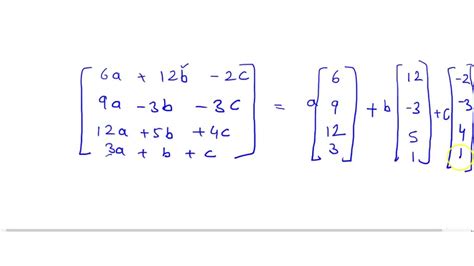 6a + 12b - 2c
9a - 3b - 3c
12a + 5b + 4c
3a + b + c
= a [6 9 12 3] + b [12 -3 5 1] + c [-2 -3 4 1]